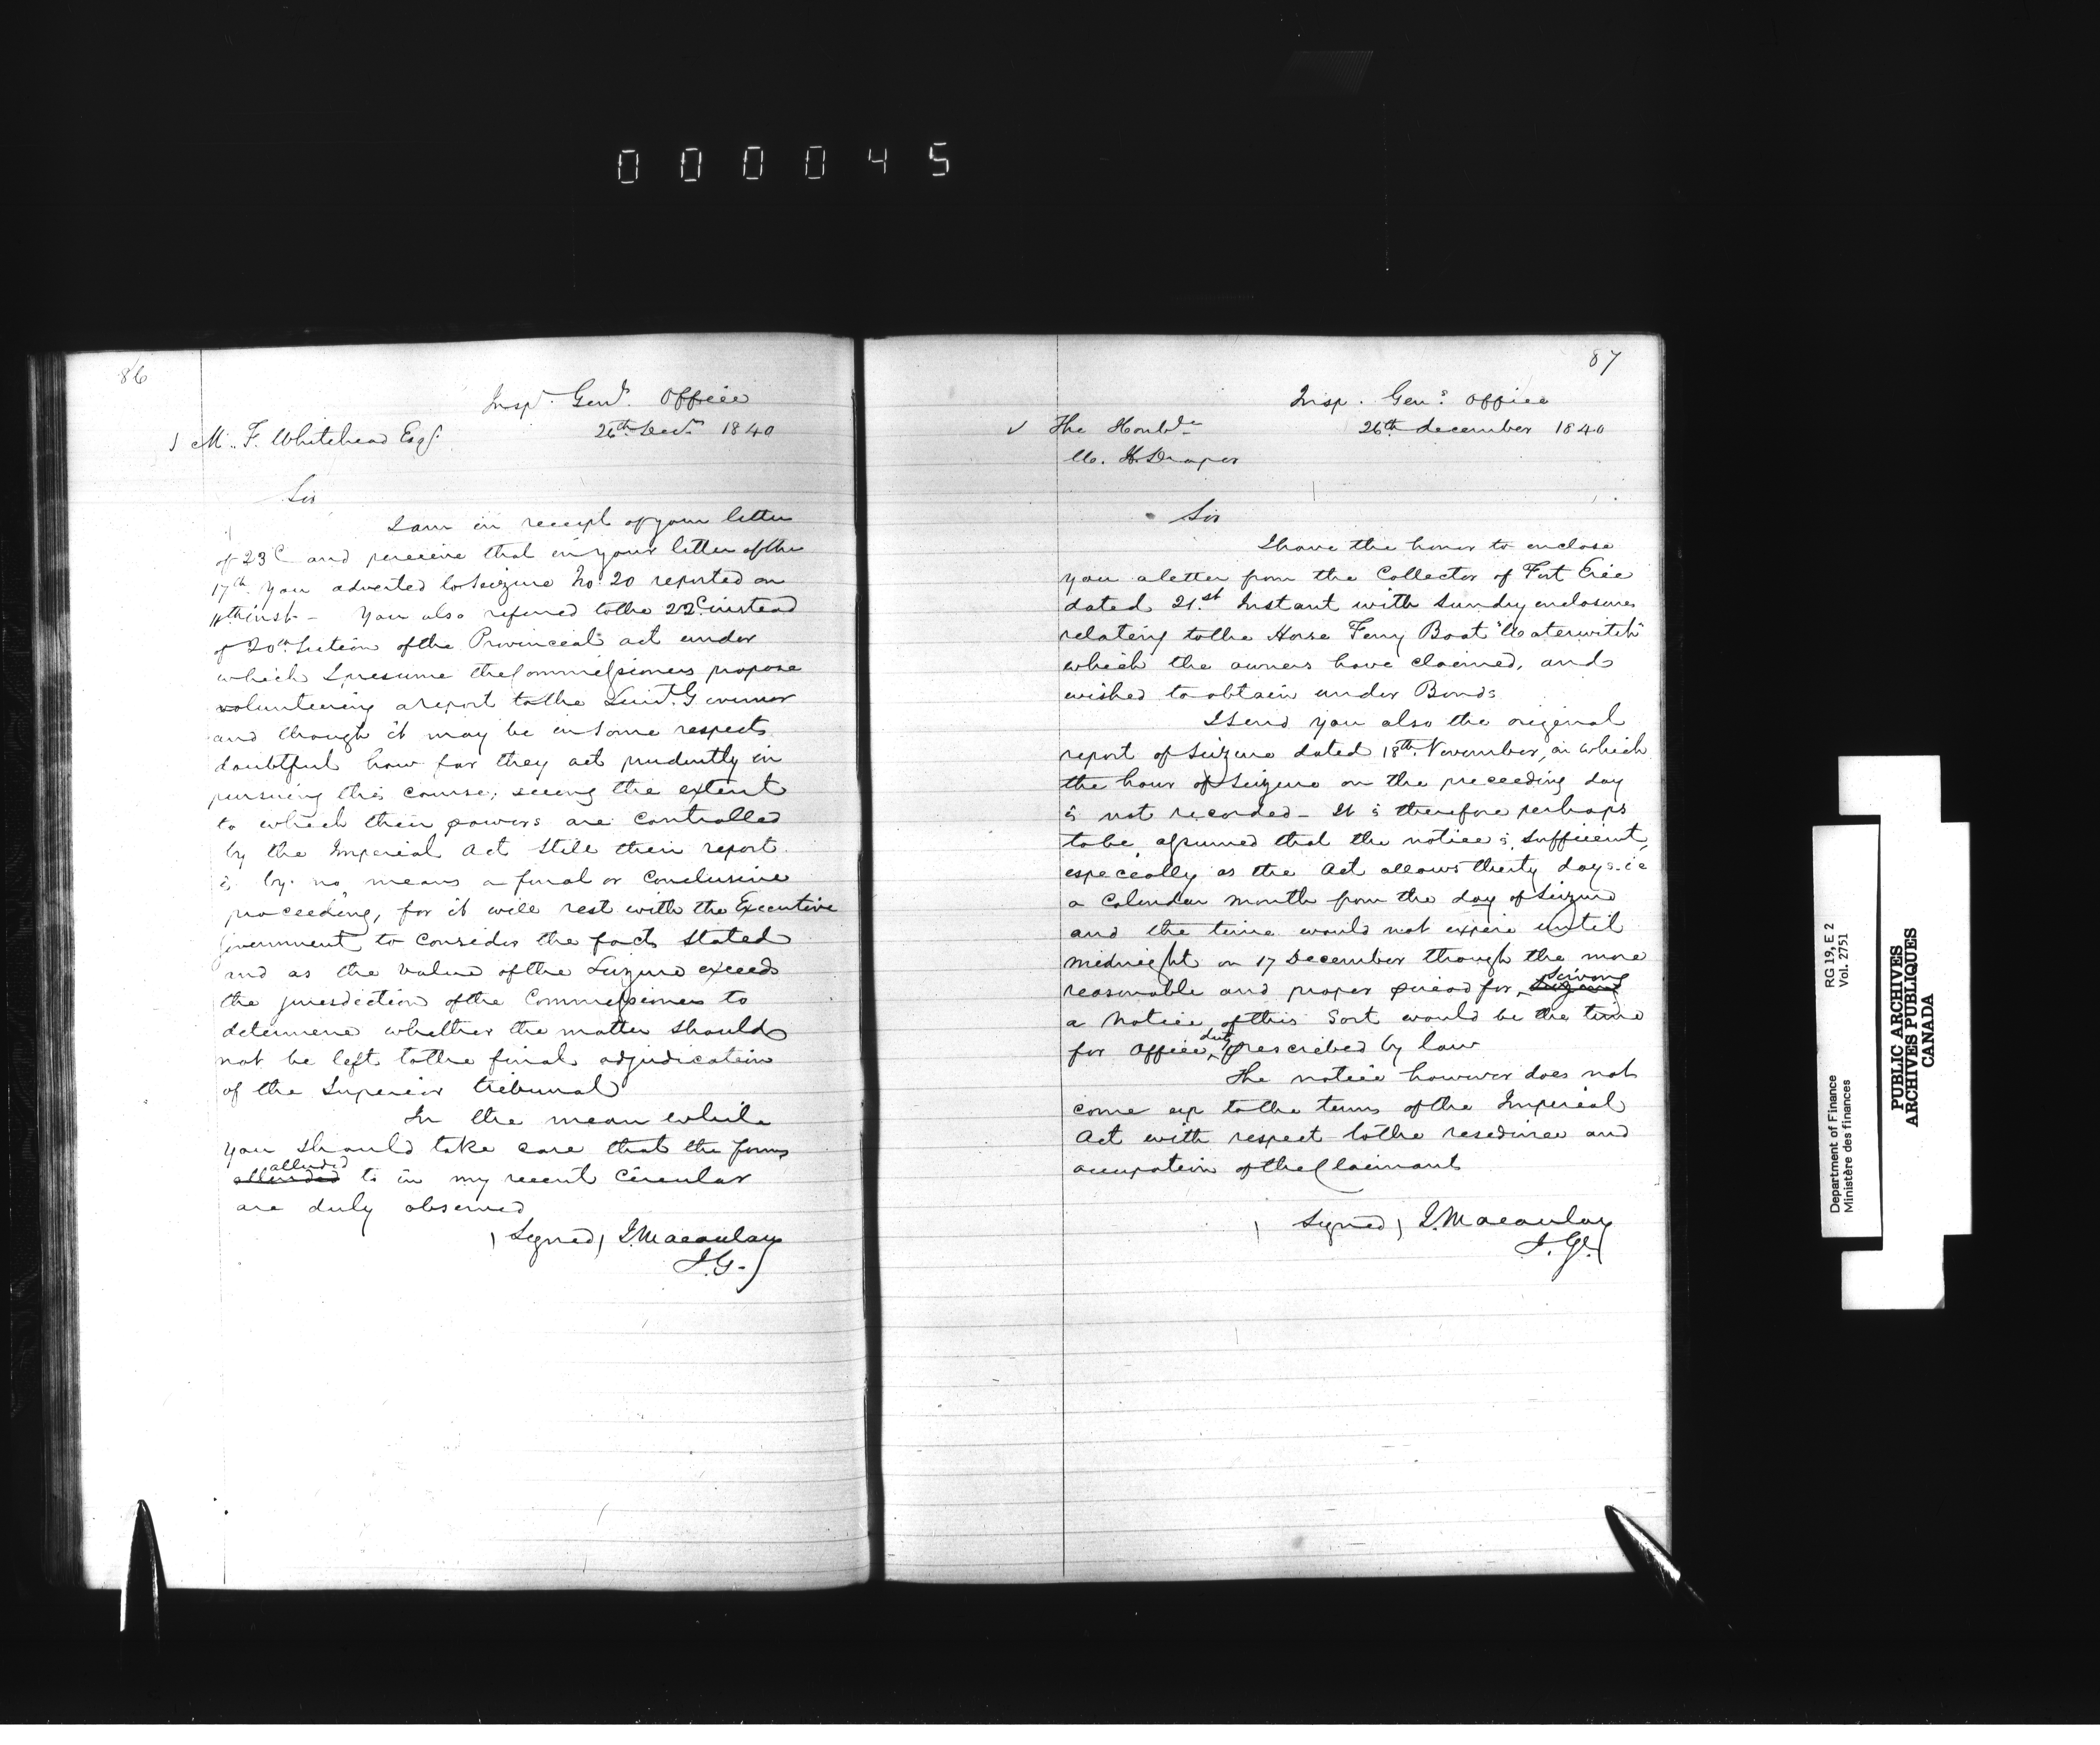 000045
86
Insp.r Genl. Office
26th Decr. 1840
M. F. Whitehead Esq.
Sir
I am in receipt of your letter
of 23d and perceive that in your letter of the
17th you adverted to Seizure No. 20 reported on
11th inst - You also referred to the 22d instead
of 20th Section of the Provincial act under
which I presume the Commissioners propose
volunteering a report to the Lieut. Governor
and though it may be in some respects
doubtful how far they act prudently in
pursuing this course; seeing the extent
to which their powers are controlled
by the Imperial Act Still their report
is by no means a final or conclusive
proceeding, for it will rest with the Executive
Government to consider the facts stated
and as the value of the Seizure exceeds
the jurisdiction of the Commissioners to
determine whether the matter should
not be left to the final adjudication
of the Superior tribunal
In the mean while
you should take care that the forms
alluded
to in my recent Circular
are duly observed
(Signed) J. Macaulay
I.G.
87
Insp. Gen.s Office
26th december 1840
The Honble
W. H. Draper
Sir
I have the honor to enclose
you a letter from the Collector of Fort Erie
dated 21.st Instant with sundry enclosures
relating to the Horse Ferry Boat "Waterwitch"
which the owners have claimed, and
wished to obtain under Bonds
I send you also the original
report of Seizure dated 18th November, in which
the hour of Seizure on the preceeding day
is not recorded - It is therefore perhaps
to be assumed that the notice is sufficient,
especially as the Act allows thirty days i e
a Calendar month from the day of Seizure
and the time would not expire until
midnight on 17 December though the more
reasonable and proper period for serving
a Notice of this Sort would be the time
for Office duty prescribed by law
The notice however does not
come up to the terms of the Imperial
Act with respect to the residence and
occupation of the Claimant
(Signed) J. Macaulay
I. Gl.
Department of Finance RG 19, E 2
Ministère des finances Vol. 2751
PUBLIC ARCHIVES
ARCHIVES PUBLIQUES
CANADA